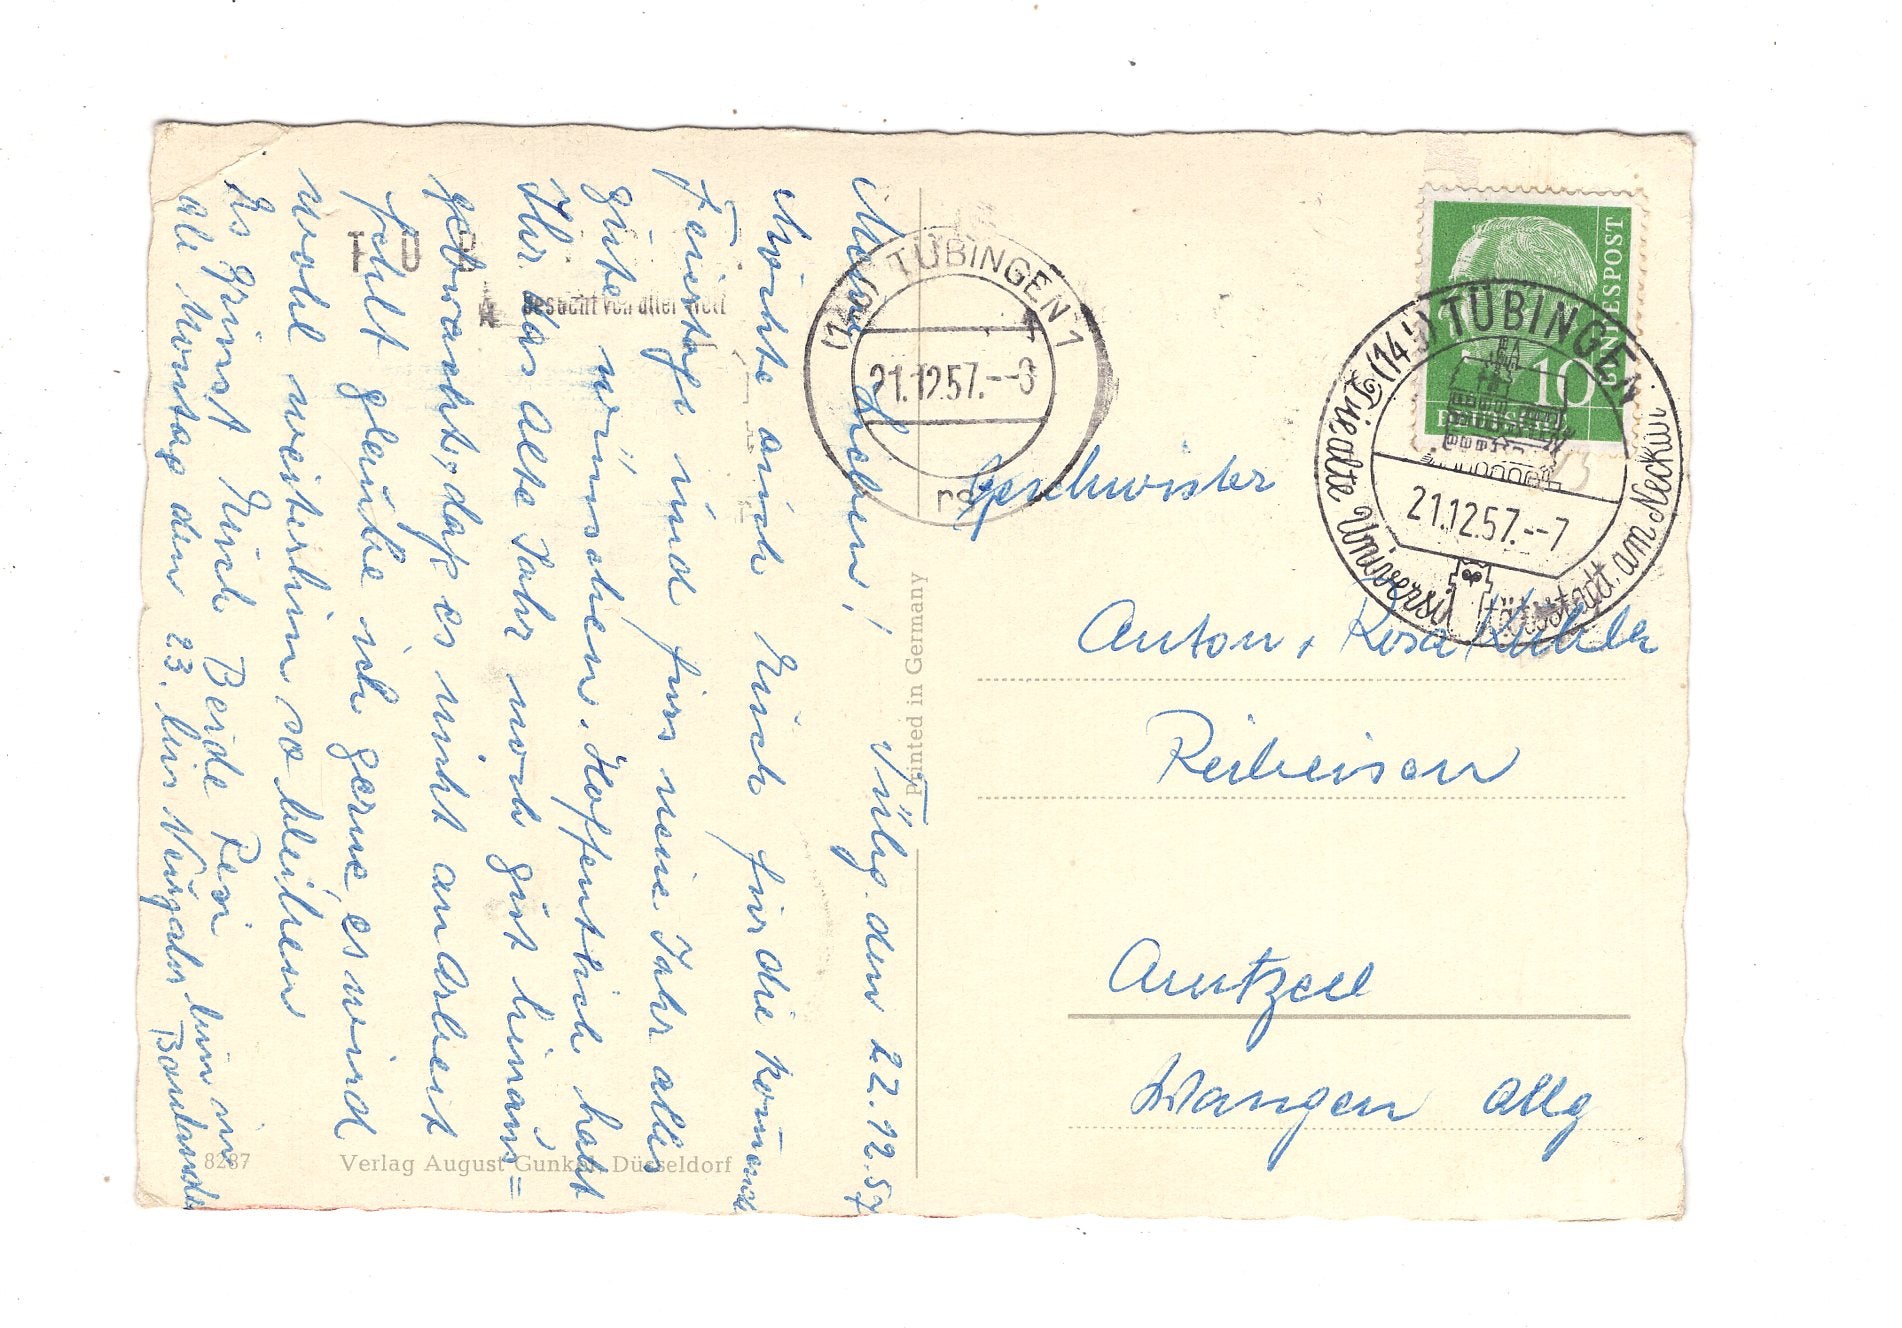 Meine Lieben! Tübg. den 22.12.57
Möchte auch Euch für die komende
Feiertage und fürs neue Jahr alles
gute wünschen. Hoffentlich habt
Ihr das alte Jahr noch gut hinaus=
gebracht, daß es nicht an Arbeit
fehlt glaube ich gerne, es wird
wohl weiterhin so bleiben
Es grüsst Euch Beide Resi bin nur
ab Montag den 23. bis Neujahr
Geschwister
Anton + Rosa
Reibeisen
Amtzell
Wangen Allg
(14b) TÜBINGEN 1
21.12.57.--8
rs
TÜB
Besucht von aller Welt
DEUTSCHE BUNDESPOST
10
(14b) TÜBINGEN
21.12.57.--7
Die alte Universitätsstadt am Neckar
Printed in Germany
8287 Verlag August Gunkel, Düsseldorf